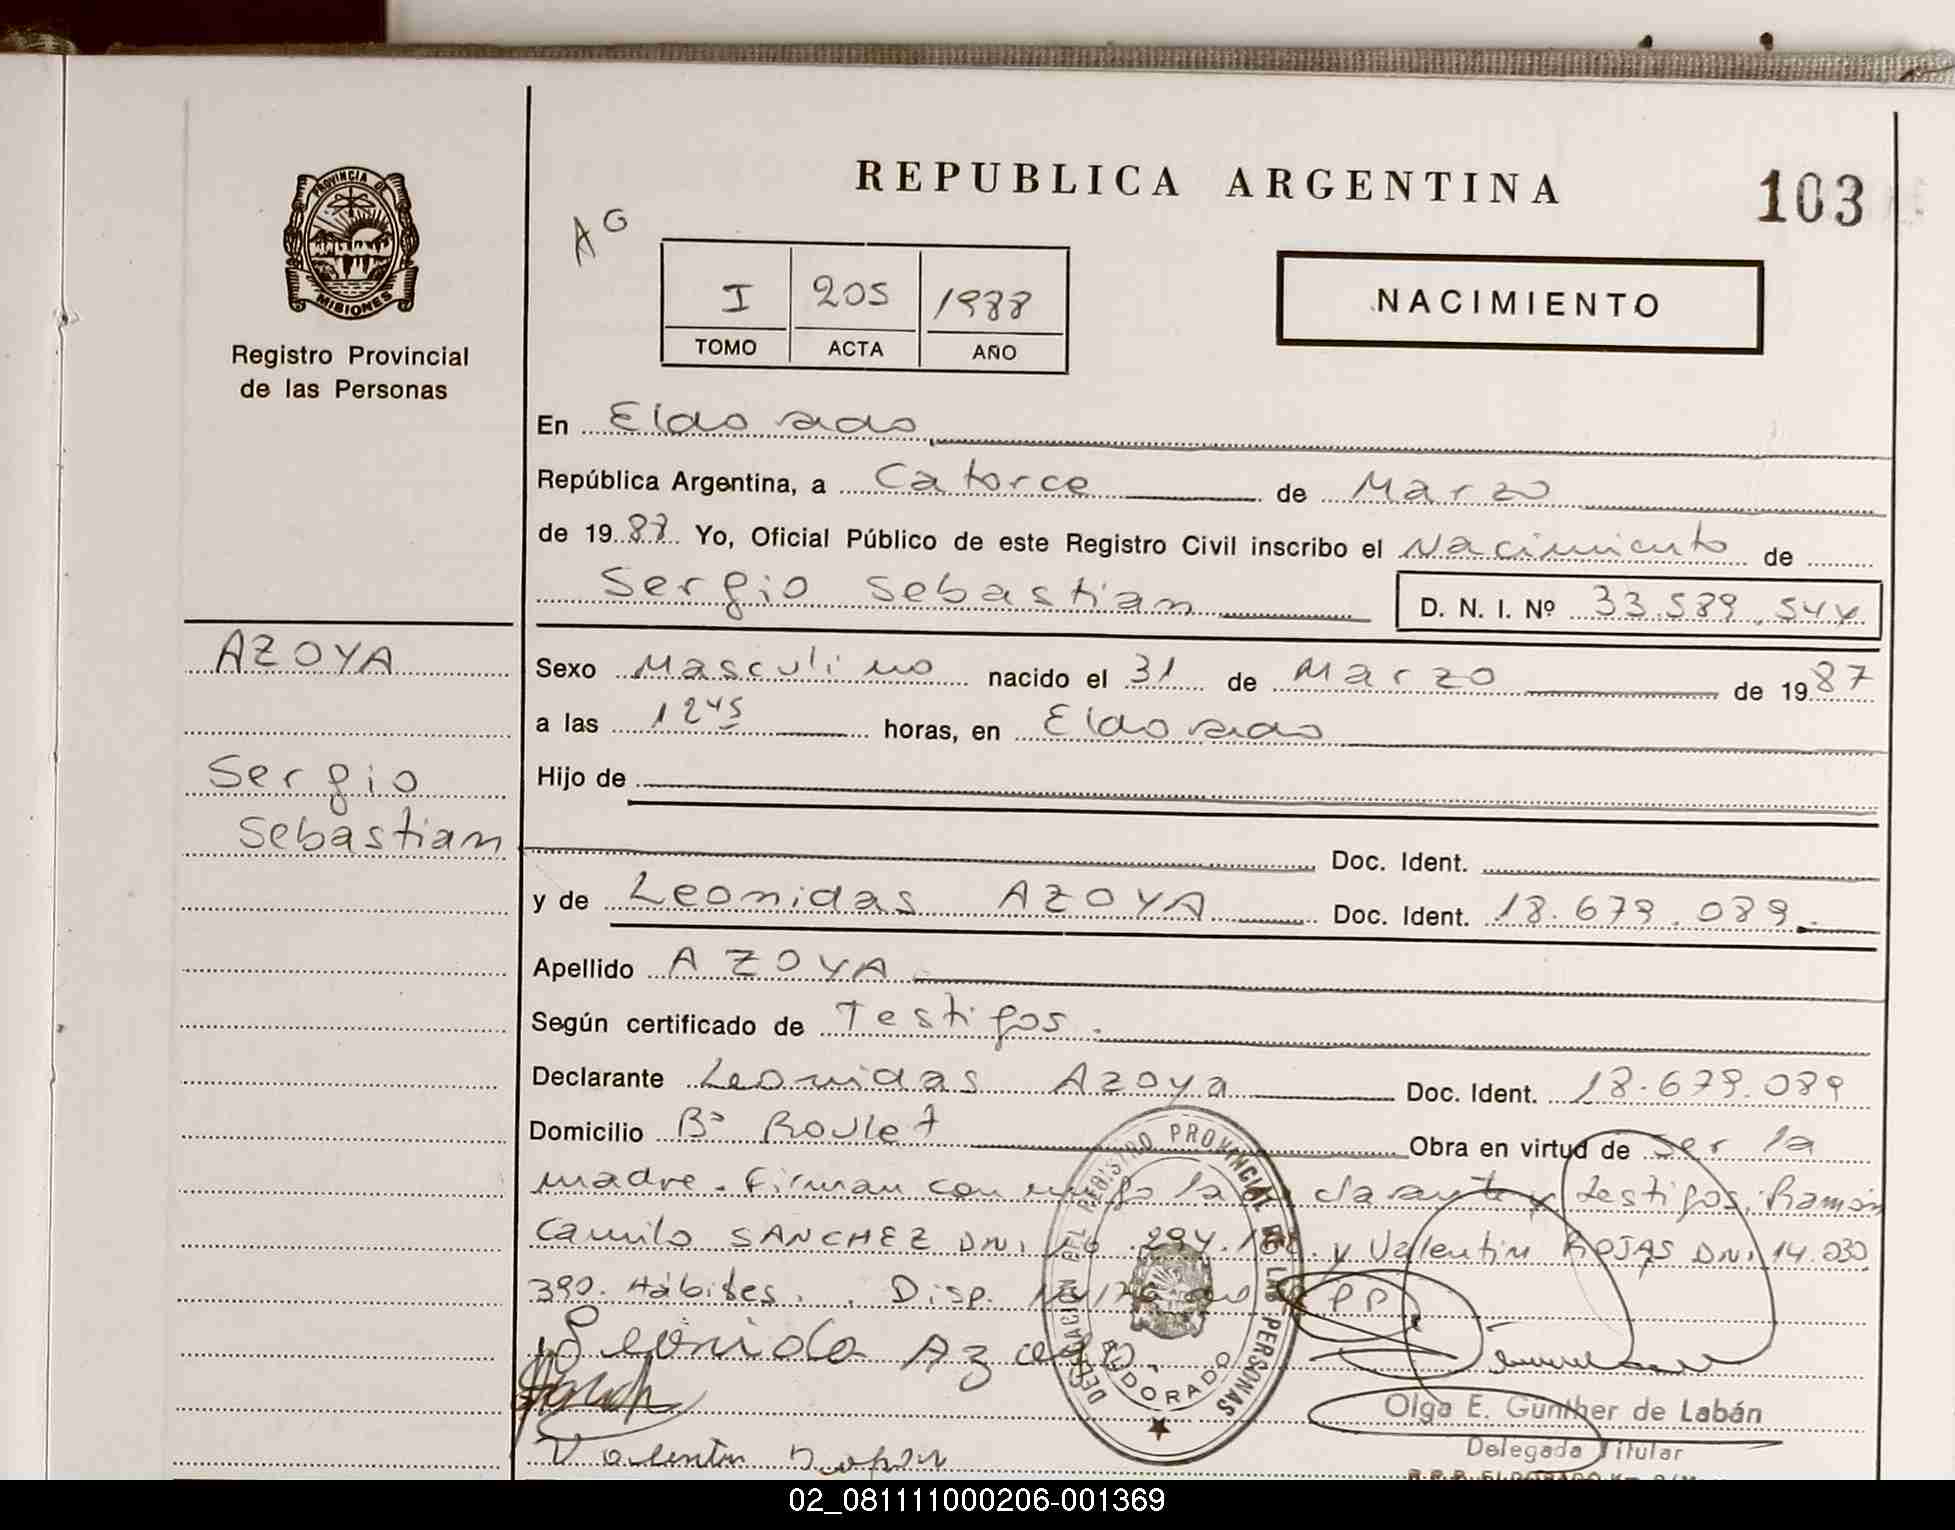 REPUBLICA ARGENTINA
103
AG
PROVINCIA DE
MISIONES
Registro Provincial
de las Personas
I 205 1988
TOMO ACTA AÑO
NACIMIENTO
En Eldorado
República Argentina, a Catorce de Marzo
de 1988 Yo, Oficial Público de este Registro Civil inscribo el Nacimiento de
Sergio Sebastian D. N. I. Nº 33.589.544
AZOYA
Sexo Masculino nacido el 31 de Marzo de 1987
a las 12 45 horas, en Eldorado
Sergio
Sebastian
Hijo de
Doc. Ident.
y de Leonidas AZOYA Doc. Ident. 18.679.089.
Apellido AZOYA
Según certificado de Testigos.
Declarante Leonidas Azoya Doc. Ident. 18.679.089
Domicilio Bº Roulet Obra en virtud de ser la
madre. Firman conmigo la declarante y testigos: Ramón
Camilo SANCHEZ DNI y Valentin ROJAS DNI 14.030.
390. Hábiles. Disp.
PP
Leonida Azoya
Valentin
DELEGACION DEL REGISTRO PROVINCIAL DE LAS PERSONAS
ELDORADO
Olga E. Gunther de Labán
Delegada Titular
02_081111000206-001369